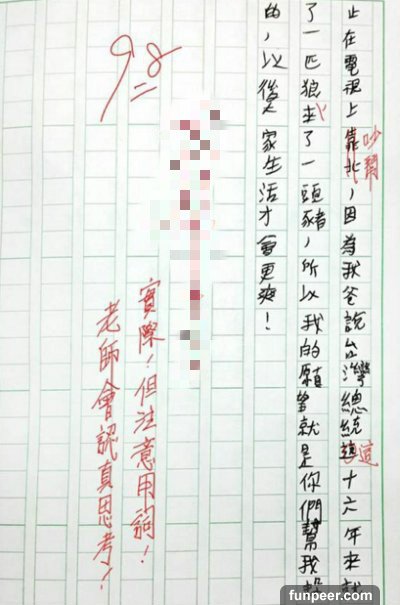 止在電視上靠北,因為我爸說台灣總統這十六年來就
吵鬧
這
了一匹狼來了一頭豬,所以我的願望就是你們幫我
的,以後家生活才會更爽!
98
實際!但注意用詞!
老師會認真思考!
funpeer.com